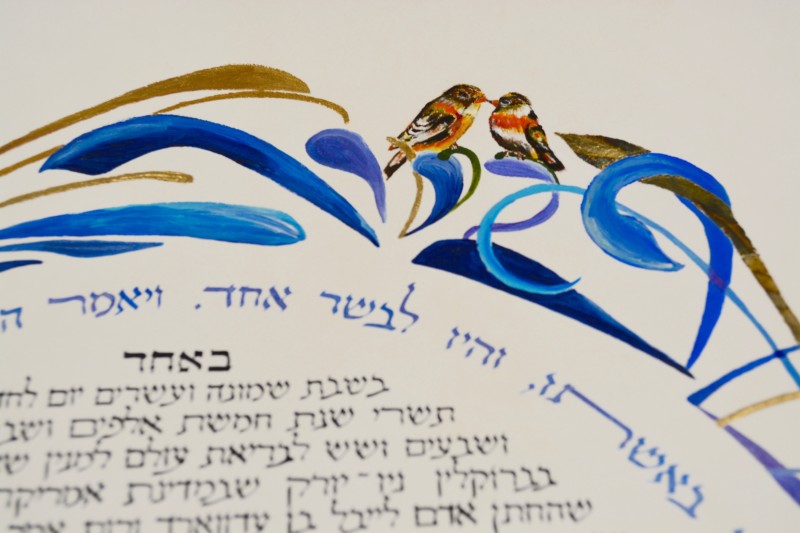 באשתו, והיו לבשר אחד. ויאמר
באחד
בשבת שמונה ועשרים יום
תשרי שנת חמשת אלפים
ושבעים ושש לבריאת עולם למנין
בברוקלין ניו־יורק שבמדינת אמריקה
שהחתן אדם לייבל בן עדווארד ורות